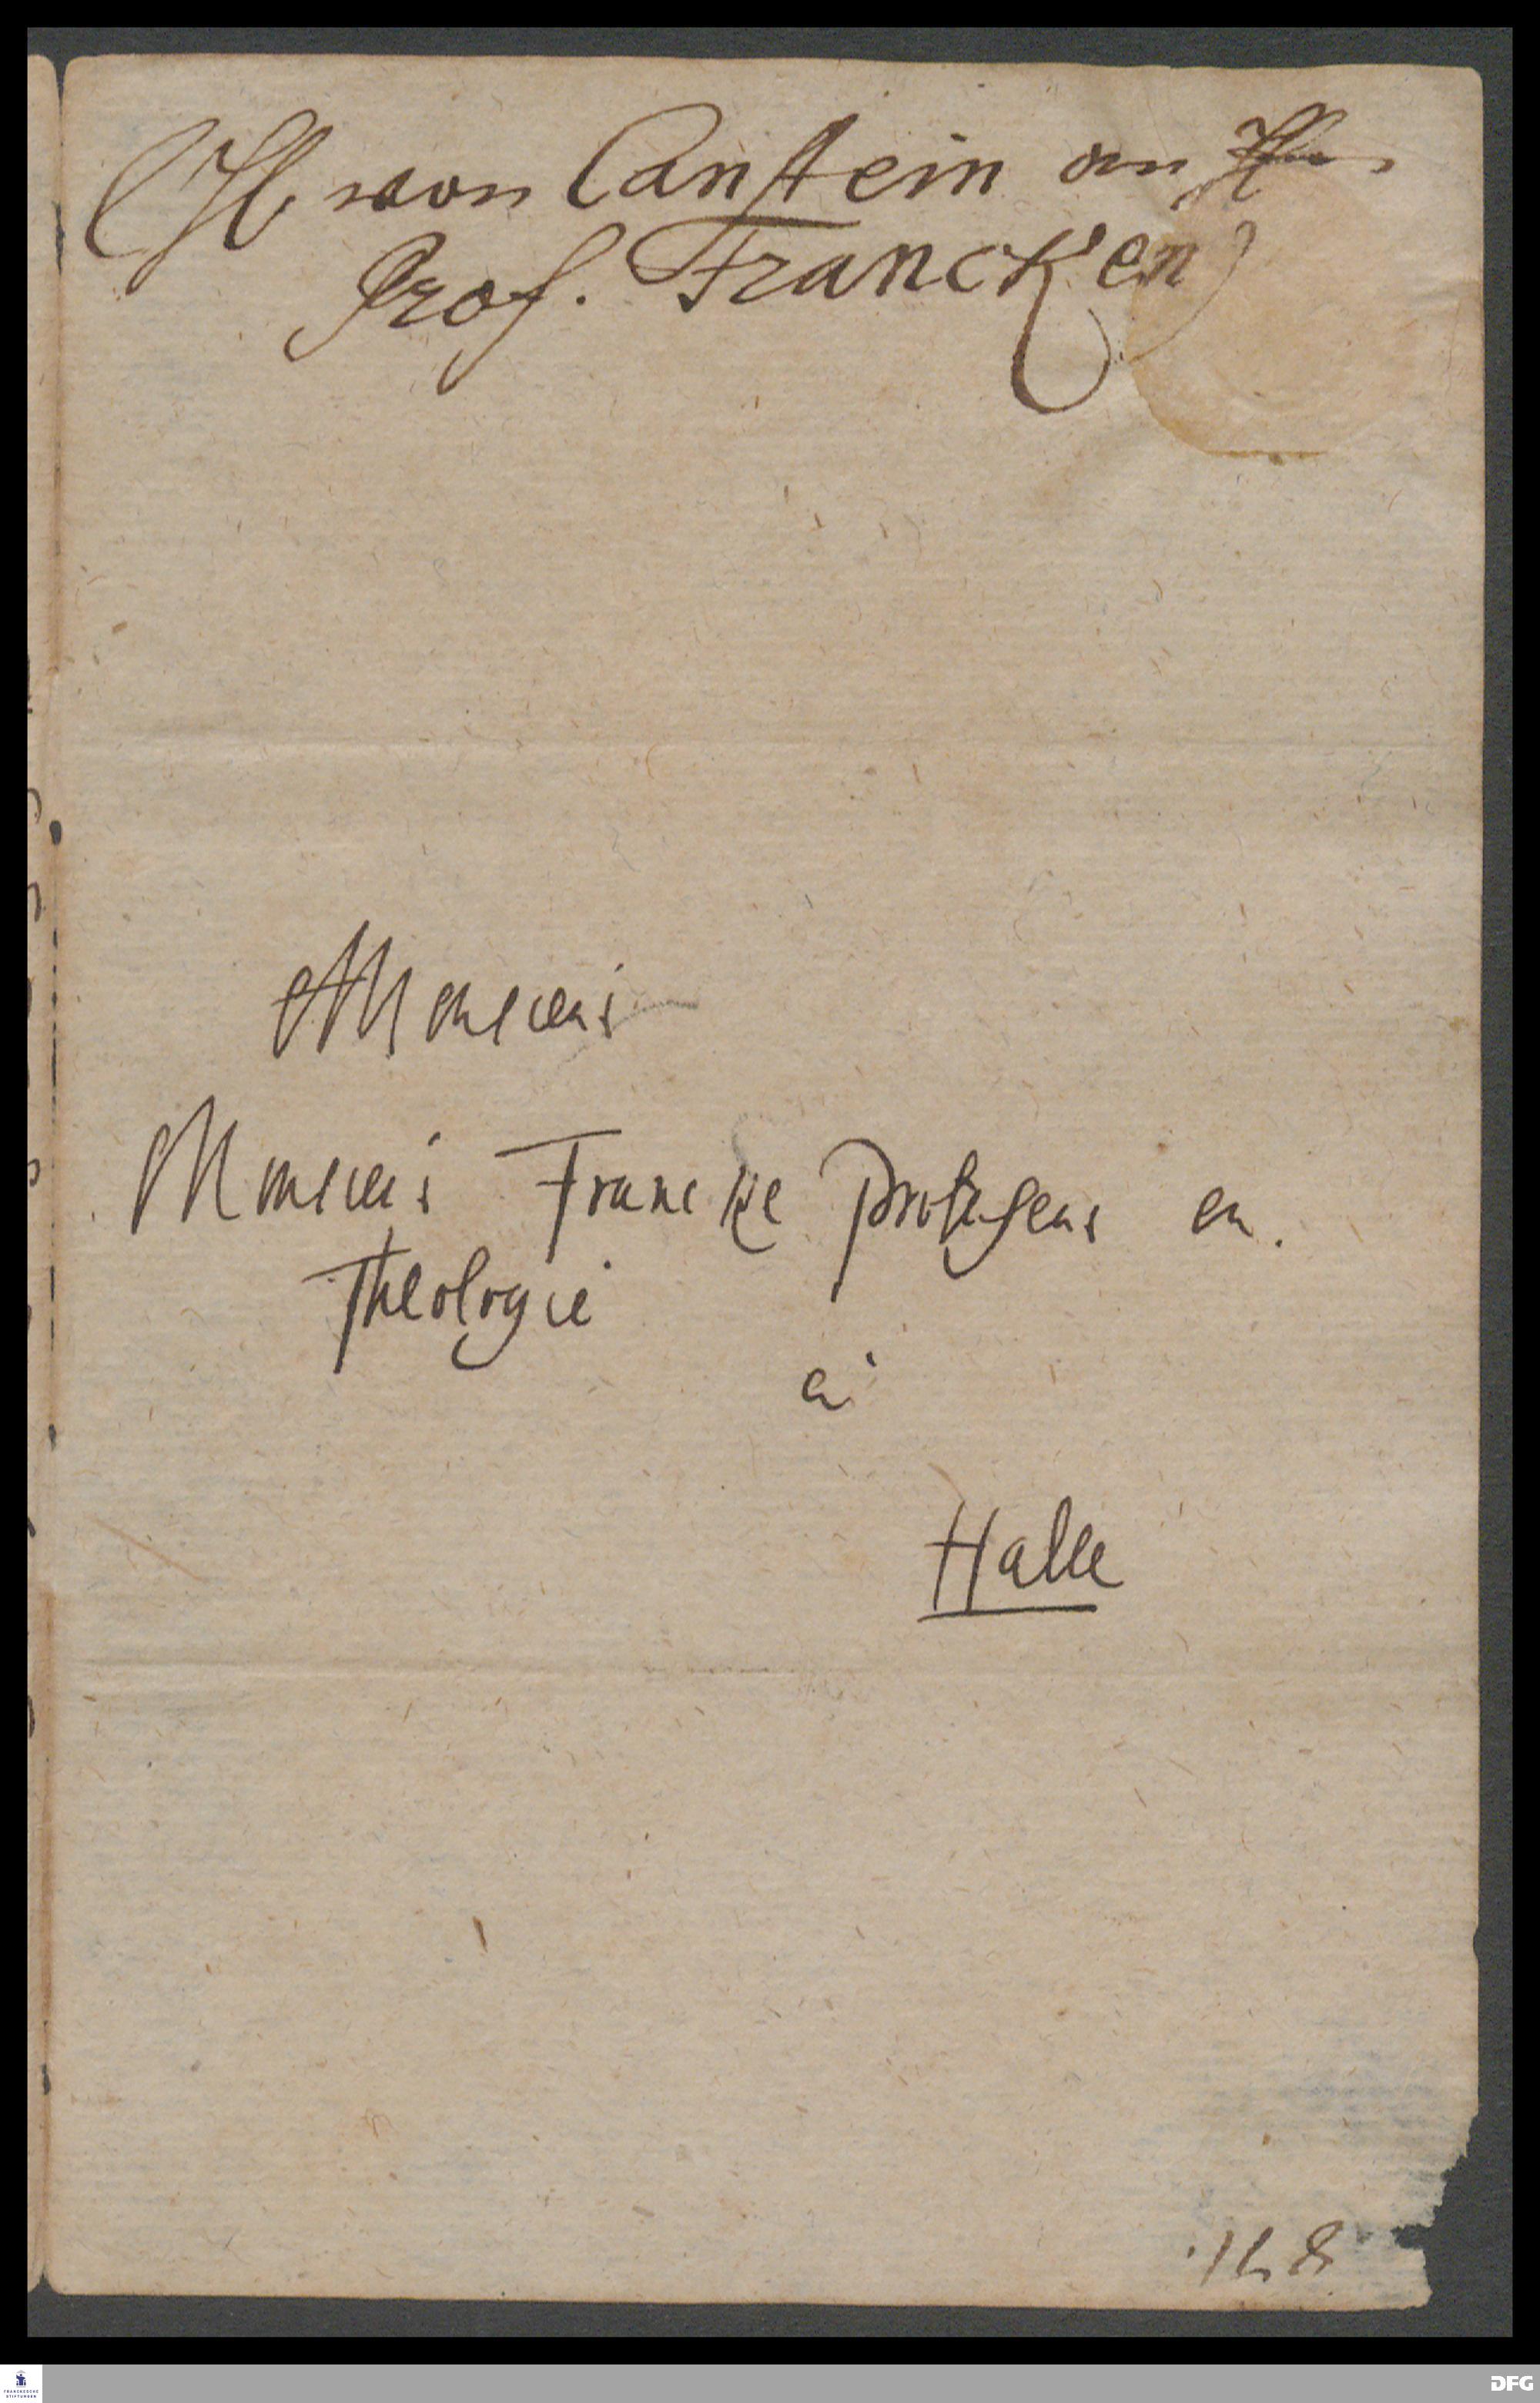 H von Canstein an H
Prof. Francken
Monsieur
Monsieur Francke professeur en
Theologie
à
Halle
FRANCKESCHE
STIFTUNGEN
DFG